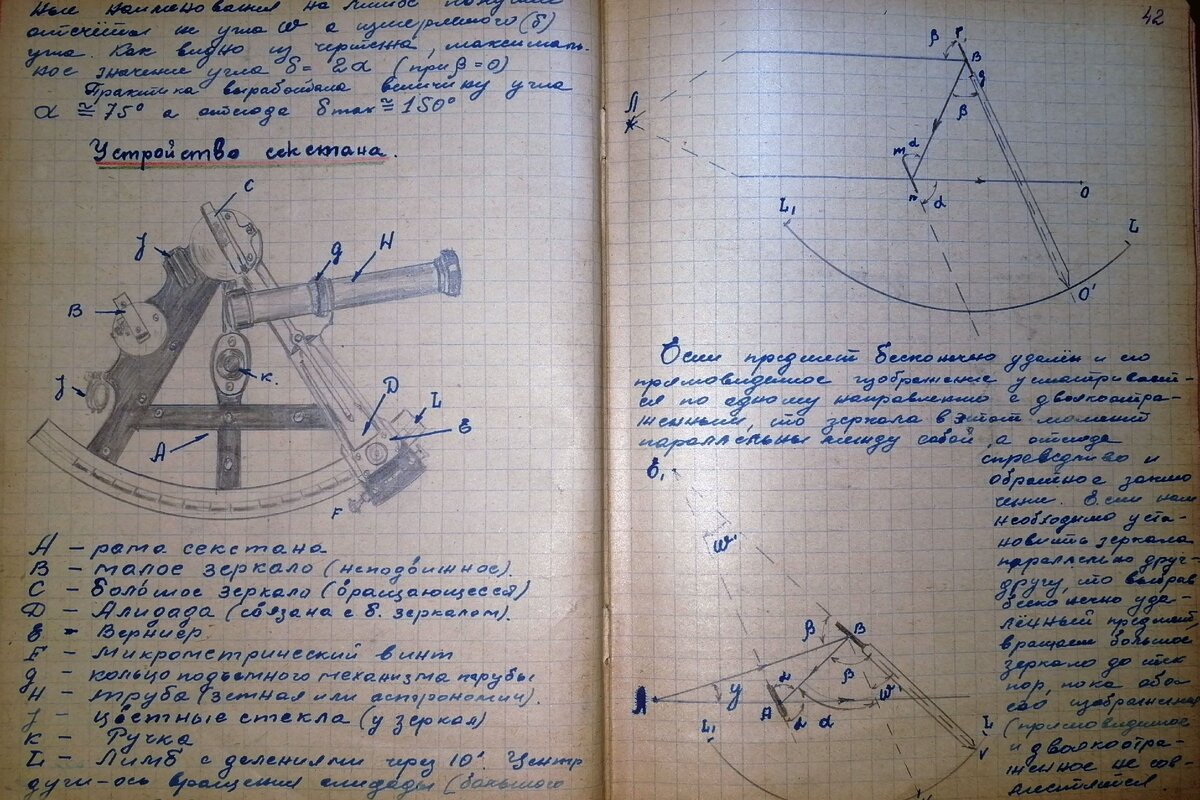 ные наименования на лимбе получим
отсчёты не угла W а измеряемого (δ)
угла. Как видно из чертежа, максималь-
ное значение угла δ = 2α (при β = 0)
Практика выработала величину угла
α ≅ 75° а отсюда δ max ≅ 150°
Устройство секстана.
C
J
g
H
B
J
K.
D
L
E
A
F
A – рама секстана
B – малое зеркало (неподвижное).
C – большое зеркало (вращающееся)
D – Алидада (связана с б. зеркалом).
E – Верниер
F – Микрометрический винт
g – кольцо подъемного механизма трубы
H – труба (земная или астрономич).
J – цветные стекла (у зеркал)
K – Ручка
L – Лимб с делениями через 10'. Центр
дуги-ось вращения алидады (большого
42
β
B
g
β
Л
m
α
n
α
O
L₁
L
O'
Если предмет бесконечно удалён и его
прямовидимое изображение усматривает-
ся по одному направлению с двоякоотра-
женным, то зеркала в этот момент
параллельны между собой, а отсюда
справедливо и
обратное заклю
чение. Если нам
необходимо уста-
новить зеркала
параллельно друг-
другу, то выбрав
бесконечно уда-
лённый предмет,
вращаем большое
зеркало до тех
пор, пока оба
его изображения
(прямовидимое
и двоякоотра-
женное не сов-
местятся
W'
β
B
β
W
y
α
A
α
L₁
L
V